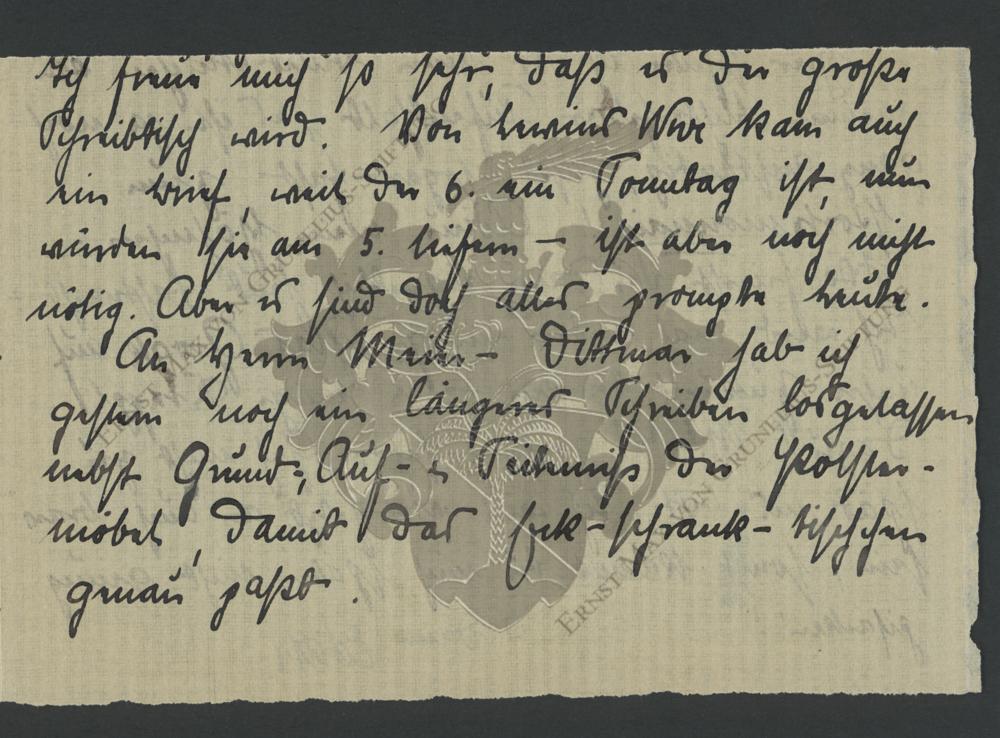 Ich freue mich so sehr, daß es der große
Schreibtisch wird. Von kam auch
ein Brief, weil der 6. ein Sonntag ist, nun
würden sie am 5. liefern – ist aber noch nicht
nötig. Aber es sind doch alles prompte Leute.
An Herrn Meier-Dittmar hab ich
gestern noch ein längeres Schreiben losgelassen
nebst Grund-, Auf- u. Seitenriß der Polster-
möbel, damit das Eck-schrank-tischchen
genau paßt.
ERNST MAX VON GRUNELIUS-STIFTUNG
ERNST MAX VON GRUNELIUS-STIFTUNG